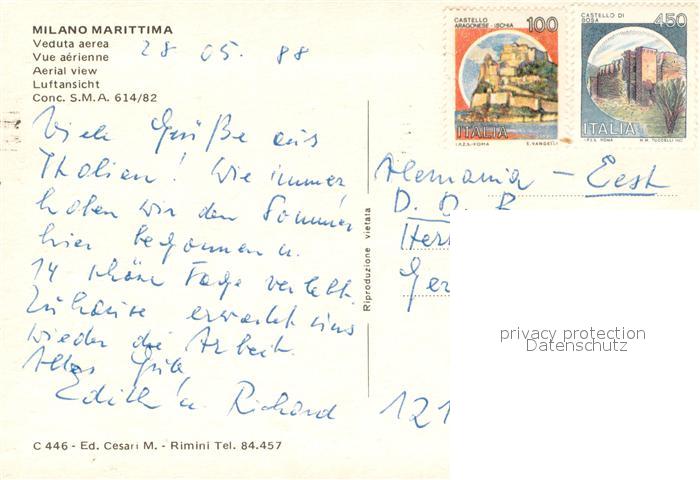 MILANO MARITTIMA
Veduta aerea
Vue aérienne
Aerial view
Luftansicht
Conc. S.M.A. 614/82
28 05. 88
Viele Grüße aus
Italien! Wie immer
haben wir den Sommer
hier begonnen u.
14 schöne Tage verlebt.
Zuhause erwartet uns
wieder die Arbeit.
Alles Gute,
Edith u. Richard
C 446 - Ed. Cesari M. - Rimini Tel. 84.457
Riproduzione vietata
CASTELLO
ARAGONESE - ISCHIA
100
ITALIA
I.P.Z.S. - ROMA E. VANGELLI
CASTELLO DI
BOSA
450
ITALIA
I.P.Z.S. ROMA
Alemania - Eest
D. D. R
Her
Ger
121
privacy protection
Datenschutz